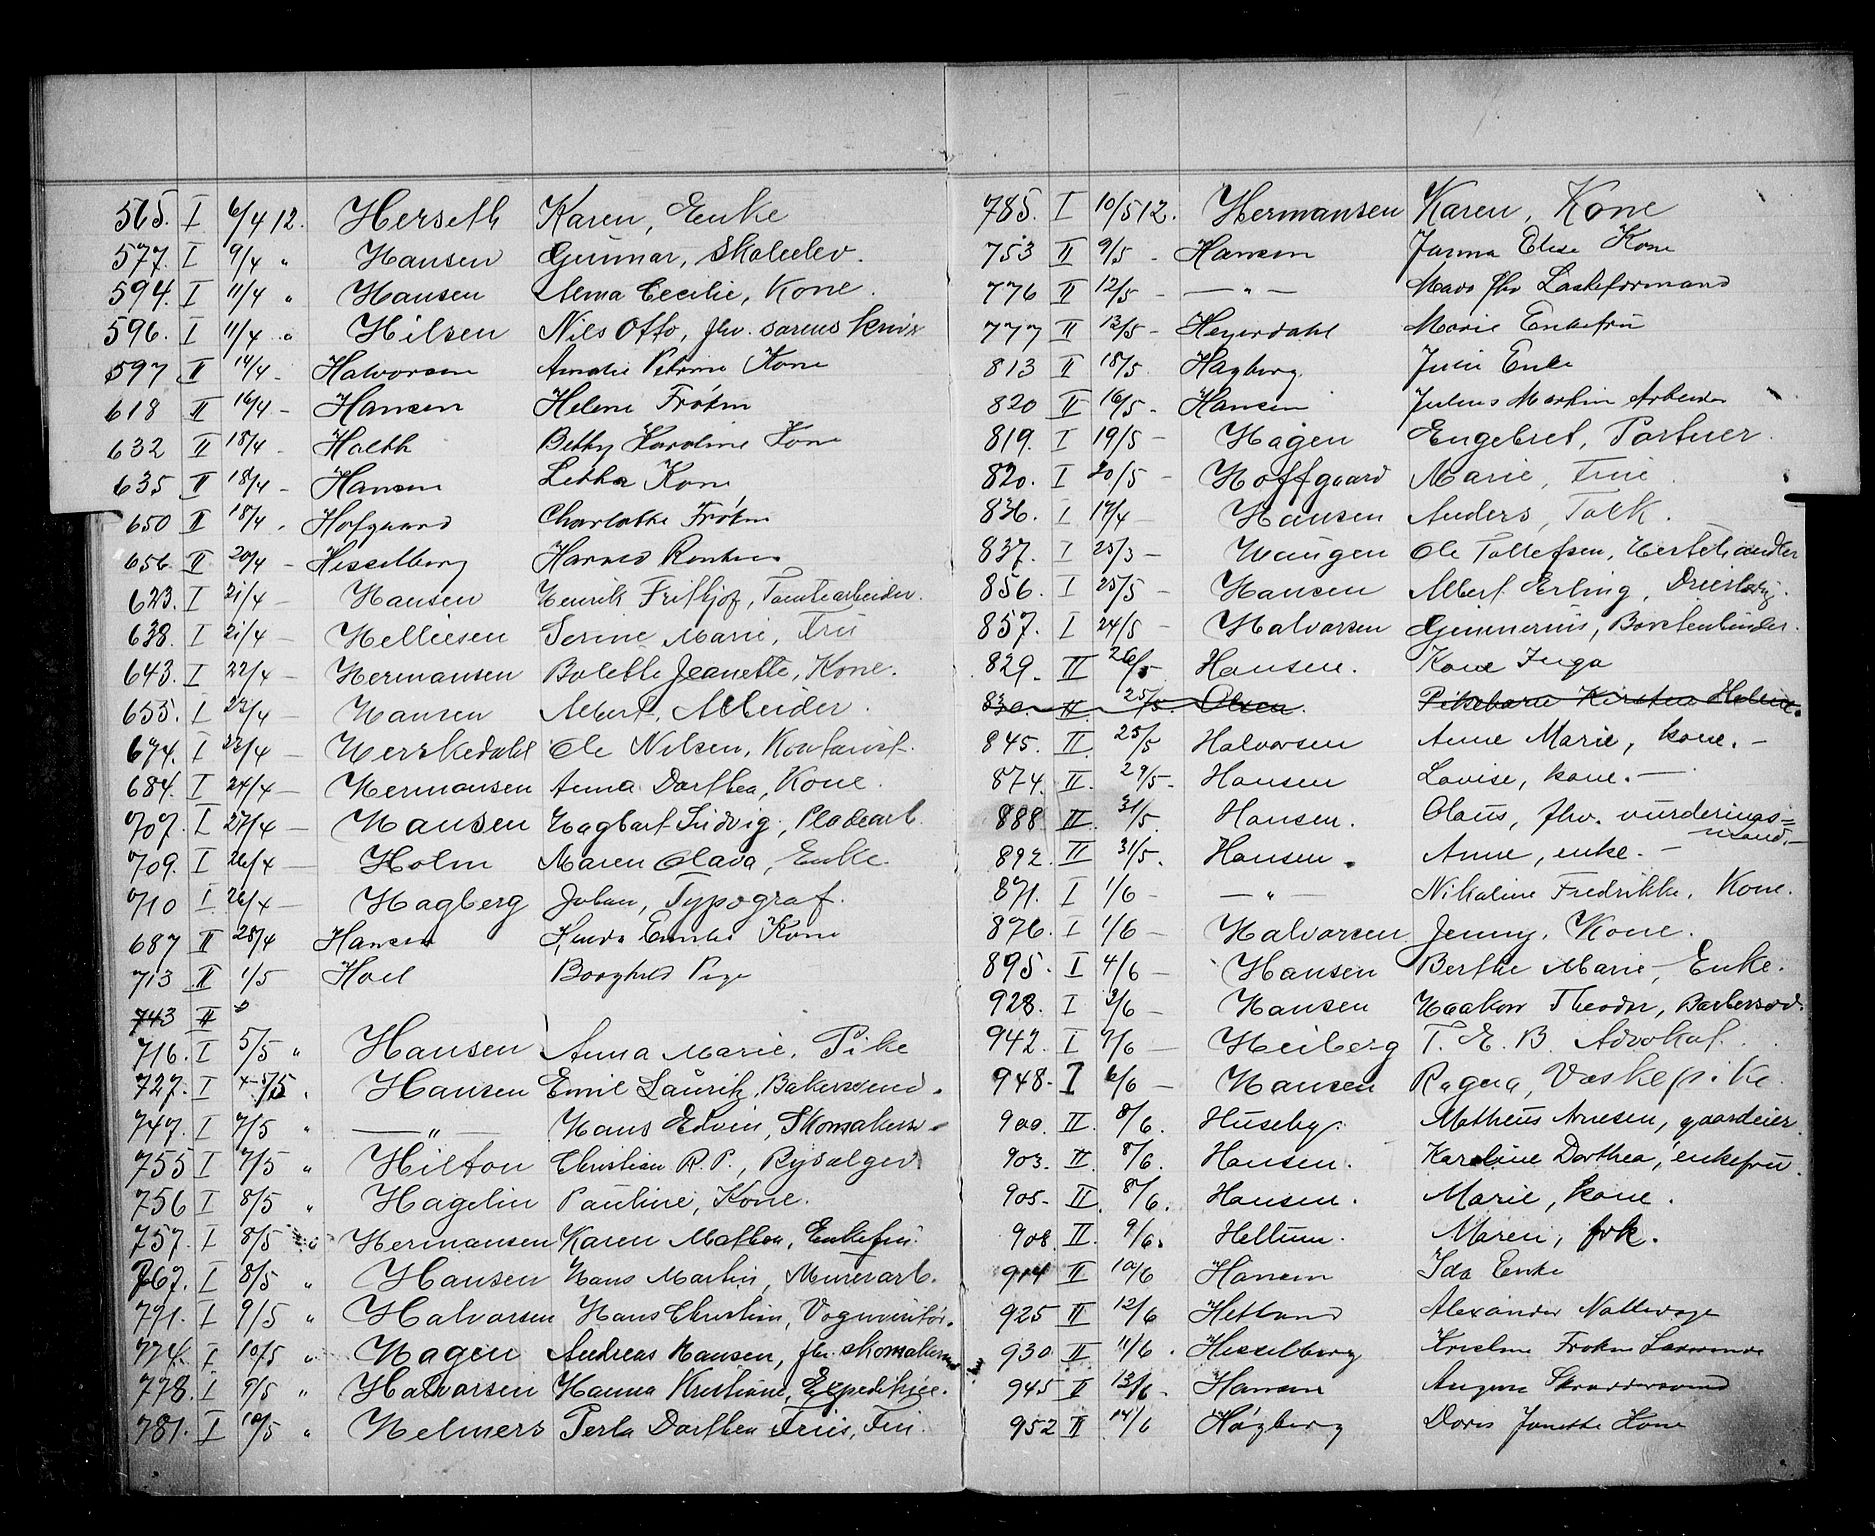 565. I 6/4 12. Herseth Karen, Enke
577. I 9/4 " Hansen Gunnar, Skoleelev.
594. I 11/4 " Hansen Alma Cecilie, Kone.
596. I 11/4 " Hilsen Nils Otto, fhv.
597 II 14/4 - Halvorsen Amalie Petrine Kone
618 II 16/4 - Hansen Helene Frøken
632 II 18/4 - Holth Betty Karoline Kone
635 II 18/4 - Hansen Kone
650 II 18/4 - Hofgaard Charlotte Frøken
656 II 20/4 - Hesselberg Harald
623. I 21/4 - Hansen Henrik Frithjof, Tomtearbeider.
638. I 21/4 - Helliesen Serine Marie, Fru
643. I 22/4 - Hermansen Bolette Jeanette, Kone.
655. I 22/4 - Hansen Albert, Arbeider.
674. I 22/4 - Herskedahl Ole Nilsen, Kontorist.
684. I 24/4 - Hermansen Anna Dorthea, Kone.
707. I 27/4 - Hansen Hagbart Ludvig, Pladearb.
709. I 26/4 - Holm Maren Olava, Enke.
710 I 26/4 - Hagberg Johan, Typograf.
687 II 28/4 Hansen Emilie Kone
713 II 1/5 Hoel Borghild Pige
743 II
716. I 5/5 " Hansen Anna Marie, Pike
727. I 5/5 " Hansen Emil Lauritz, Bakersvend.
747. I 7/5 " — " — Hans Edvin, Skomakersv.
755 I 7/5 " Hilton Christian R. P.,
756 I 8/5 " Hagelin Pauline, Kone.
757. I 8/5 " Hermansen Karen Mathea, Enkefru.
767. I 8/5 " Hansen Hans Martin, Murerarb.
771. I 9/5 " Halvorsen Hans Christian, Vognvisitør.
774. I 10/5 " Hagen Andreas Hansen, fhv. Skomakerm
778. I 9/5 " Halvorsen Hanna Kristiane, Expeditrice.
781. I 10/5 " Helmers Perla Dorthea Friis, Fru.
785. I 10/5 12. Hermansen Karen, Kone
753 II 9/5 - Hansen Elise Kone
776 II 12/5 - — " — Mads fhv Lasteformand
777 II 12/5 - Heyerdahl Marie Enkefru
813 II 18/5 Hagberg Julie Enke
820 II 16/5 - Hansen Julius Martin Arbeider
819. I 19/5 - Hagen Engebret, Portner.
820. I 20/5 - Hoffgaard Marie, Frue.
836. I 17/4 - Hansen Anders, Tolk.
837. I 25/3 - Haugen Ole Tollefsen, Hestehandler
856. I 25/5 - Hansen Albert Erling,
857. I 24/5 - Halvorsen Gunnerius, Børstenbinder.
829. II 26/5 Hansen. Kone Inga
830. II 25/5. Olsen. Pikebarn Kirsten Helene.
845. II. 25/5 Halvorsen Anne Marie, kone. -
874. II. 29/5. Hansen Lovise, kone. —
888 II. 31/5. Hansen. Olaus, fhv. vurderings=
mand. -
892. II 31/5. Hansen. Anne, enke. -
871. I 1/6 - — " — Nikoline Fredrikke, Kone.
876. I 1/6 - Halvorsen Jenny, Kone.
895. I 4/6 - Hansen Berthe Marie, Enke.
928. I 3/6 - Hansen Haakon Theodor, Barbersvd.
942. I 7/6 - Heiberg T. E. B. Advokat.
948. I 6/6 - Hansen Ragna, Vaskepike
900. II. 8/6. Huseby. Matheus Arnesen, gaardeier.
903. II. 8/6. Hansen. Karoline Dorthea, enkefru.
905. II. 8/6. Hansen. Marie, kone.
908. II. 9/6. Hellum. Maren, frk.
914 II 10/6 Hansen Ida Enke
925 II 12/6 Hetland Alexander
930 II 11/6 . Hesselberg Frøken
945 II 13/6 - Hansen August Skræddersvend
952 II 14/6 Høgberg Doris Janette Kone